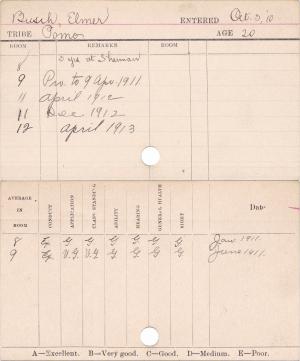 Busch, Elmer ENTERED Oct. 3, '10
TRIBE Pomo AGE 20
ROOM REMARKS ROOM
8 3 yrs at Sherman
9 Pro. to 9 Apr. 1911
11 April 1912
11 Dec 1912
12 April 1913
AVERAGE IN ROOM CONDUCT APPLICATION CLASS STANDING ABILITY HEARING GENERAL HEALTH SIGHT Date
8 Ex G G G G G G Jan 1911.
9 Ex V.G V.G G G G G June 1911.
A—Excellent. B—Very good. C—Good. D—Medium. E—Poor.